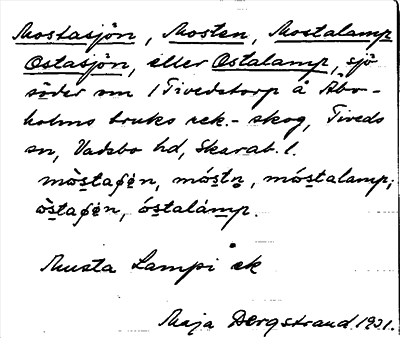 Mostasjön, Mosten, Mostalamp
Ostasjön, eller Ostalamp, sjö
söder om /Tivedstorp å Åbo-
holms bruks ek.-skog, Tiveds
sn, Vadsbo hd, Skarab. l.
mòstaʃön, móstn, móstalamp;
òstaʃön, óstalámp.
Musta Lampi ek
Maja Bergstrand 1931.